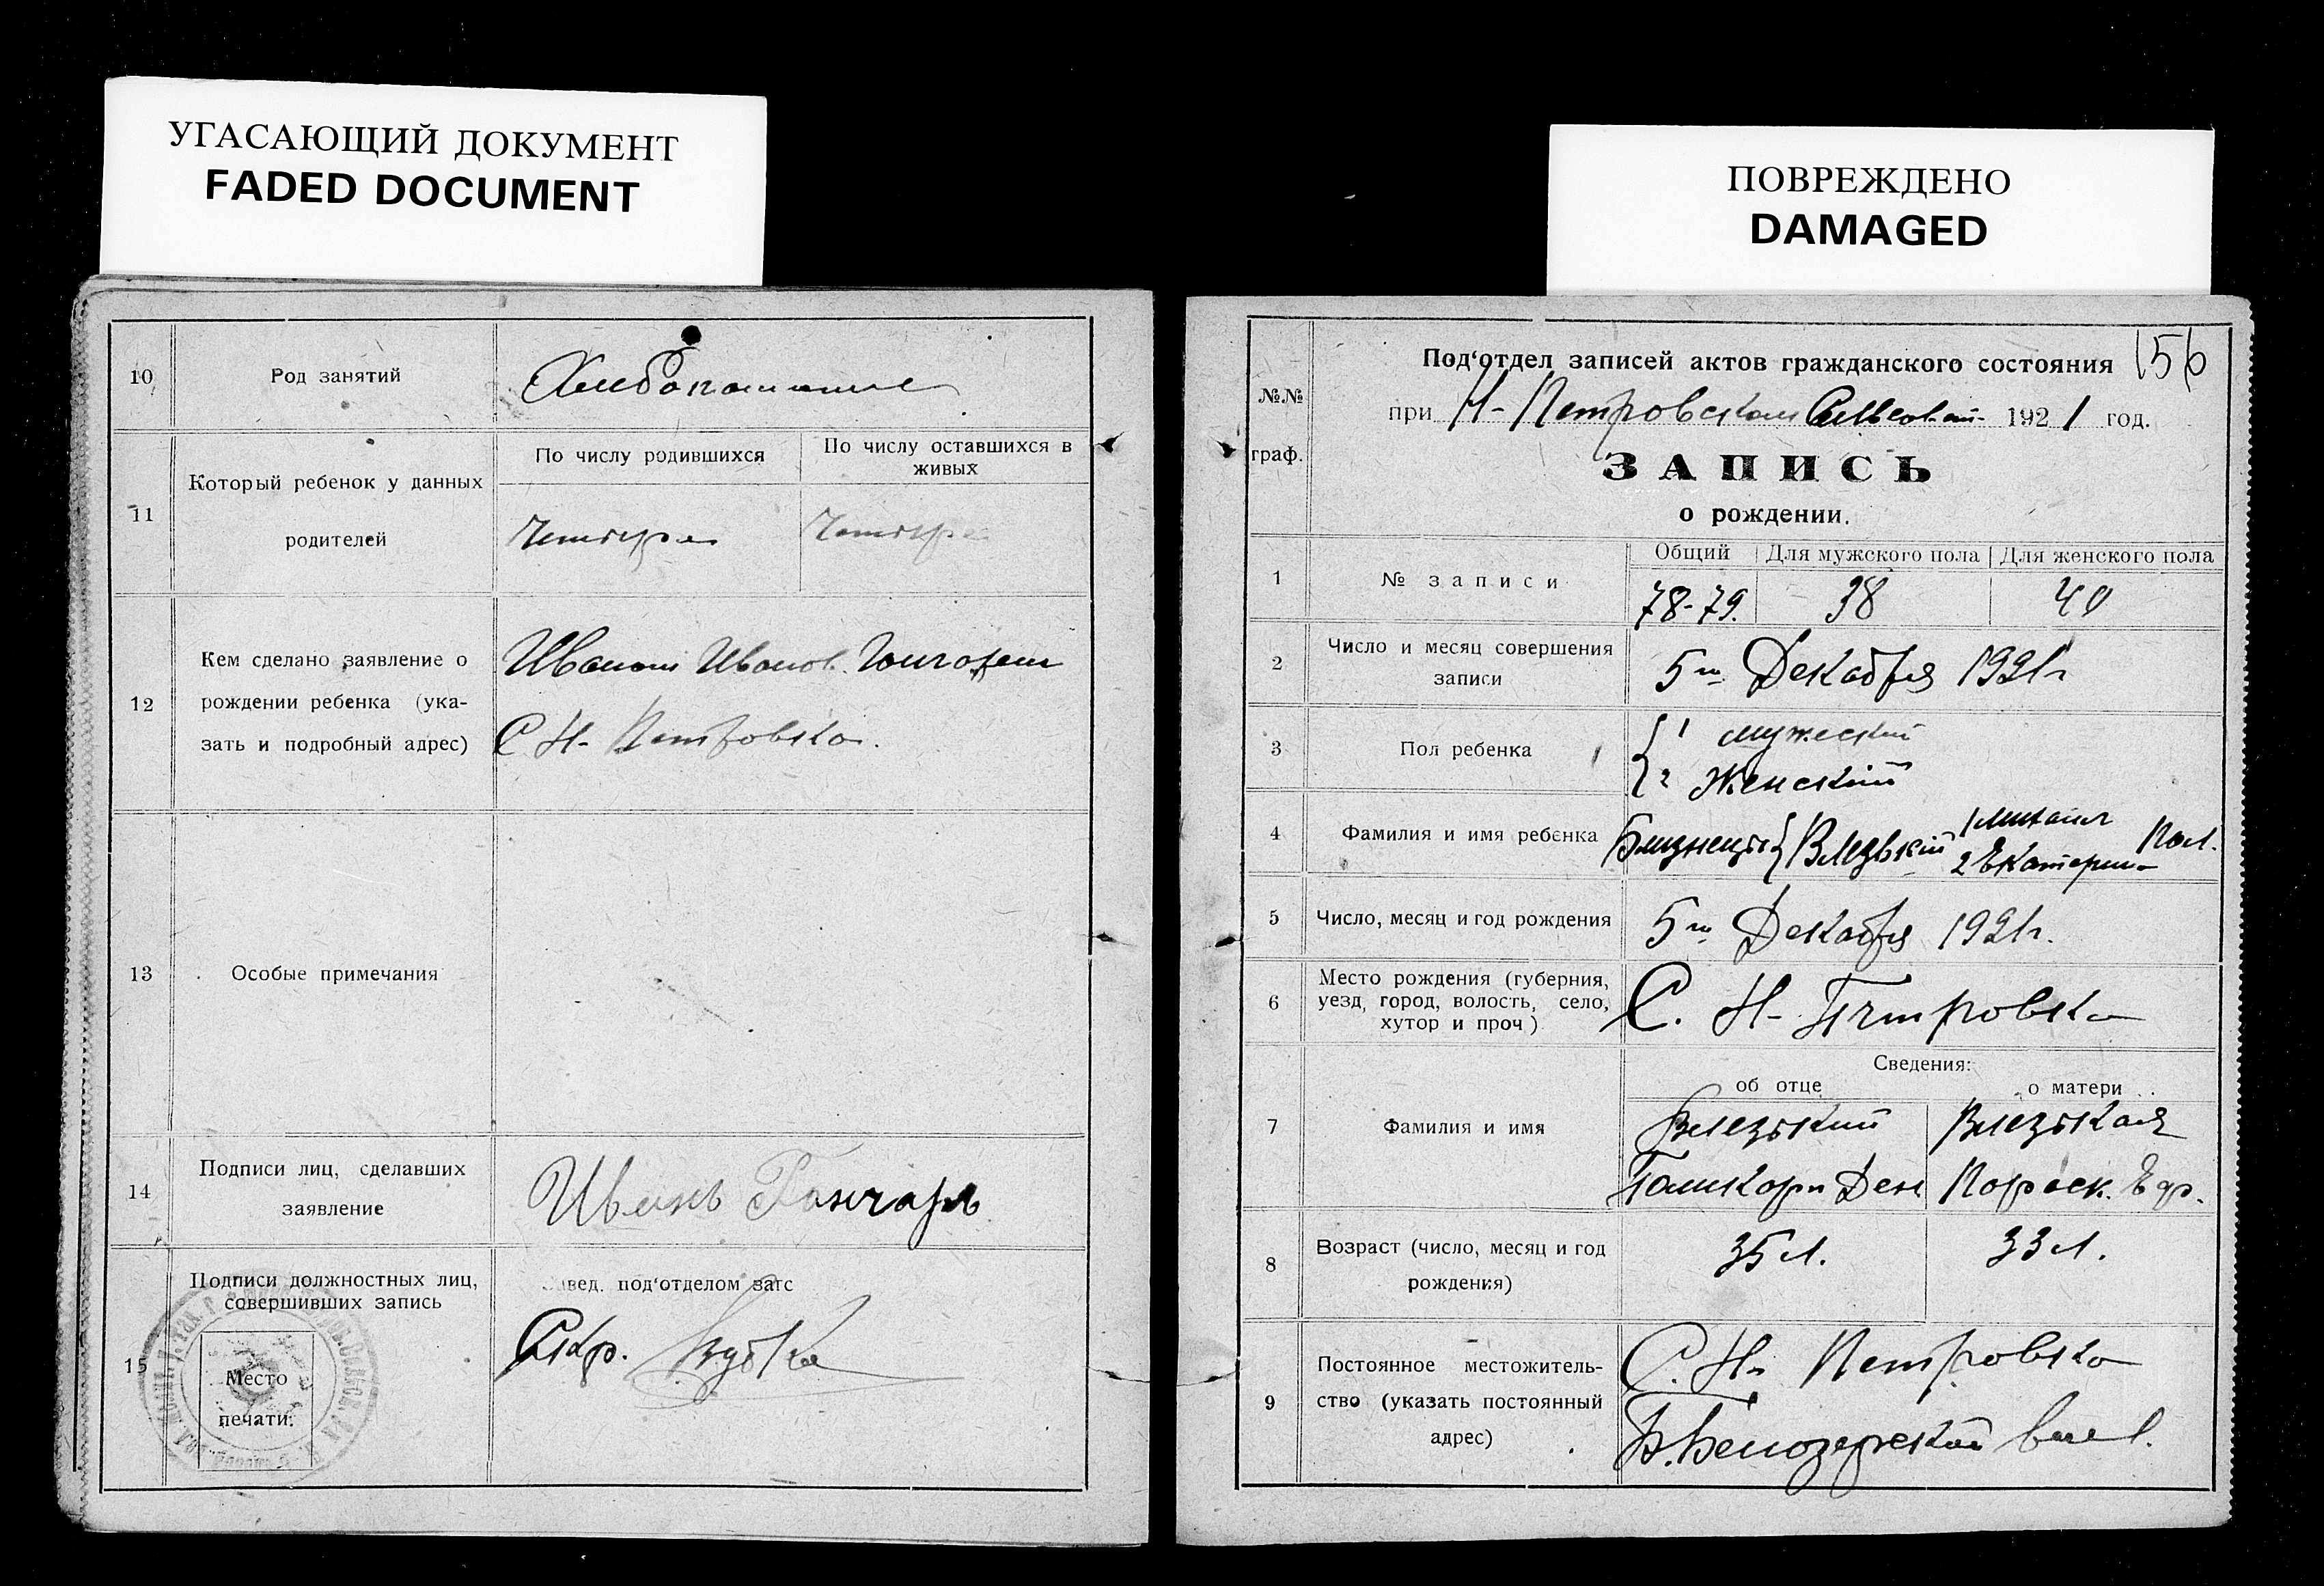 УГАСАЮЩИЙ ДОКУМЕНТ
FADED DOCUMENT
10
Род занятий
11
Который ребенок у данных
родителей
По числу родившихся
По числу оставшихся в
живых
12
Кем сделано заявление о
рождении ребенка (ука-
зать и подробный адрес)
С Н- Петровка.
13
Особые примечания
14
Подписи лиц, сделавших
заявление
Иванъ Гончаръ
15
Подписи должностных лиц,
совершивших запись
Место
печати.
вед. под‘отделом загс
Скр.
ПОВРЕЖДЕНО
DAMAGED
№.№
граф.
Под‘отдел записей актов гражданского состояния
156
при Н-Петровском 1921 год.
ЗАПИСЬ
о рождении.
1
№ записи
Общий
Для мужского пола
Для женского пола
78-79.
38
40
2
Число и месяц совершения
записи
5го Декабря 1921г
3
Пол ребенка
1 мужеский
2 Женский
4
Фамилия и имя ребенка
Близнецы
1 Михаил
2 Екатерина
5
Число, месяц и год рождения
5го Декабря 1921г.
6
Место рождения (губерния,
уезд, город, волость, село,
хутор и проч)
С. Н-Петровка
7
Фамилия и имя
Сведения:
об отце
о матери
8
Возраст (число, месяц и год
рождения)
35 л.
33 л.
9
Постоянное местожитель-
ство (указать постоянный
адрес)
С. Н- Петровка
Б.Белозерской вол.